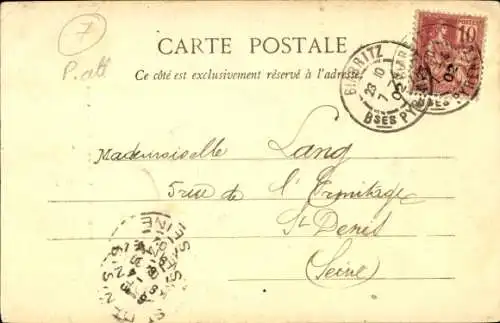 7
P. att
CARTE POSTALE
Ce côté est exclusivement réservé à l'adresse
POSTES
10
BIARRITZ
23 10
7
BSES PYRÉNÉES
Mademoiselle Lang
5 rue de l'Ermitage
St Denis
(Seine)